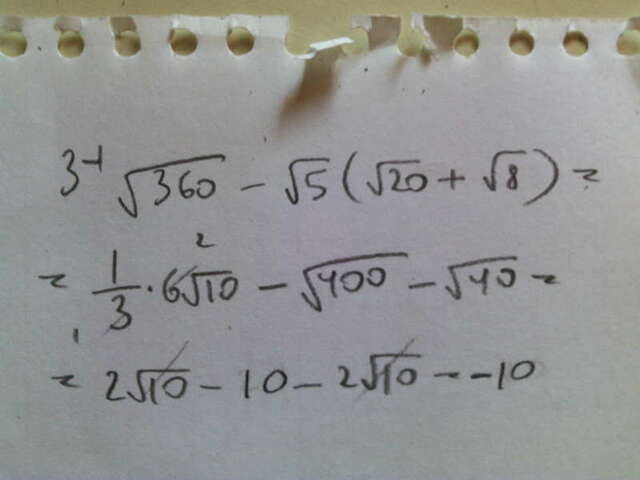 3⁻¹ √360 - √5 (√20 + √8) =
= 1/3 · 6√10 - √400 - √40 =
= 2√10 - 10 - 2√10 = -10